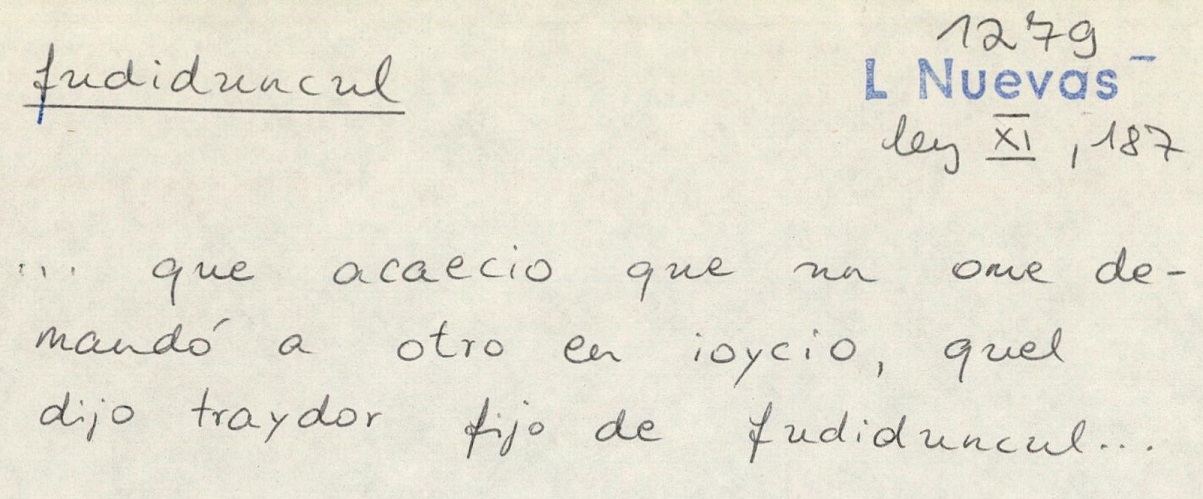 fudiduncul
1279
L Nuevas
ley XI, 187
... que acaecio que un ome de-
mandó a otro en ioycio, quel
dijo traydor fijo de fudiduncul...